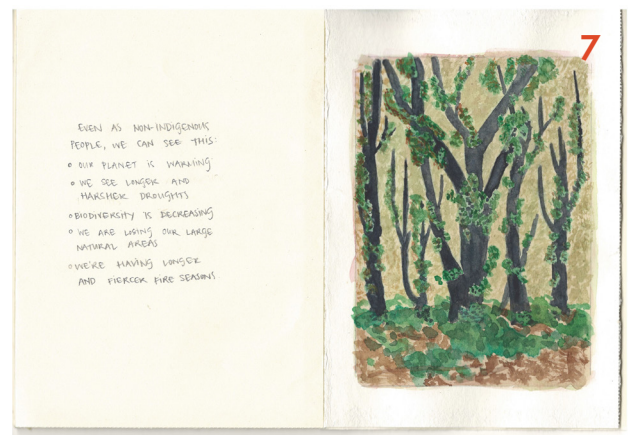 EVEN AS NON-INDIGENOUS
PEOPLE, WE CAN SEE THIS:
• OUR PLANET IS WARMING
• WE SEE LONGER AND
HARSHER DROUGHTS
• BIODIVERSITY IS DECREASING
• WE ARE LOSING OUR LARGE
NATURAL AREAS
• WE'RE HAVING LONGER
AND FIERCER FIRE SEASONS
7